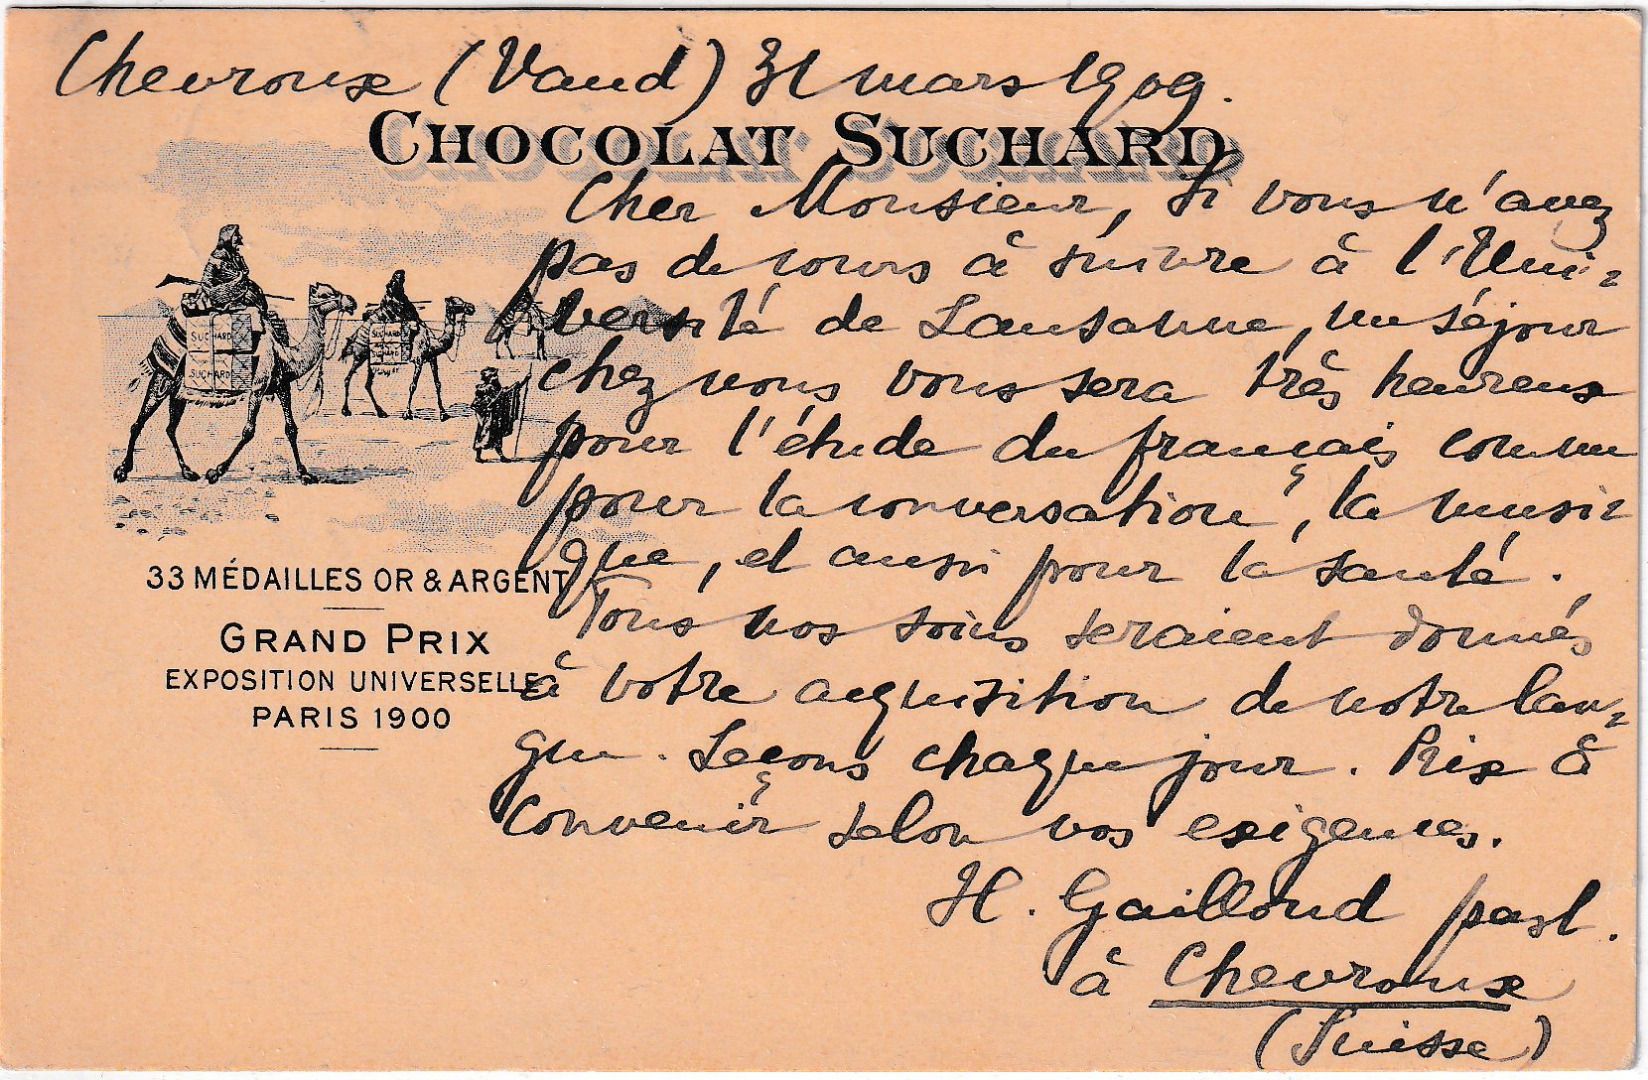 Chevroux (Vaud) 31 mars 1909.
CHOCOLAT SUCHARD
Cher Monsieur, Si vous n'avez
pas de cours à suivre à l'Uni-
versité de Lausanne, un séjour
chez nous vous sera très heureux
pour l'étude du français comme
pour la conversation, la musi-
que, et aussi pour la santé.
Tous nos soins seraient donnés
à votre acquisition de notre lan-
gue. Leçons chaque jour. Prix à
convenir selon vos exigences.
H. Gailloud past.
à Chevroux
(Suisse)
SUCHARD
SUCHARD
SUCHARD
33 MÉDAILLES OR & ARGENT
GRAND PRIX
EXPOSITION UNIVERSELLE
PARIS 1900